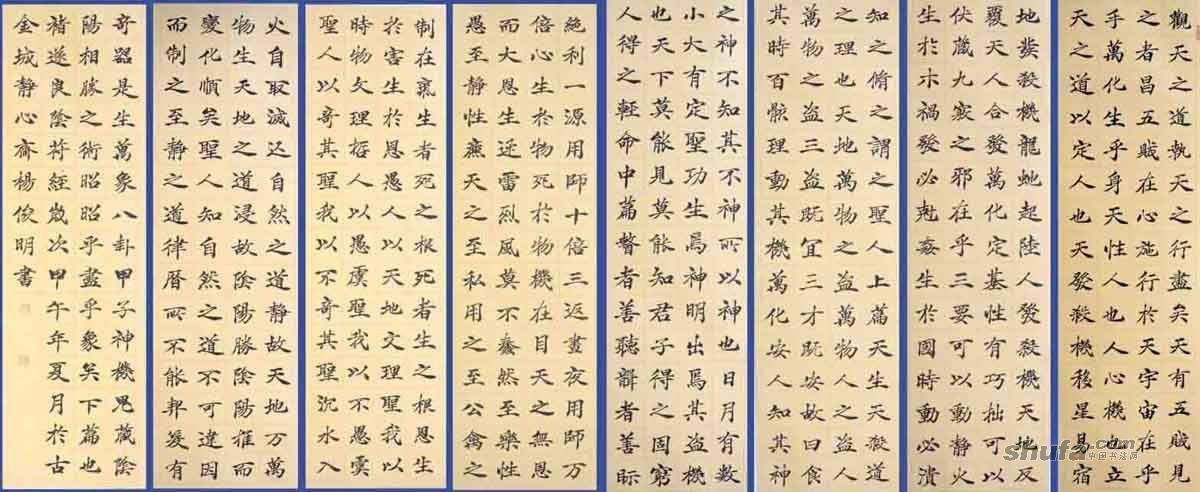 觀天之道執天之行盡矣天有五賊見
之者昌五賊在心施行於天宇宙在乎
手萬化生乎身天性人也人心機也立
天之道以定人也天發殺機移星易宿
地發殺機龍虵起陸人發殺機天地反
覆天人合發萬化定基性有巧拙可以
伏藏九竅之邪在乎三要可以動靜火
生於木禍發必尅姦生於國時動必潰
知之脩之謂之聖人上篇天生天殺道
之理也天地萬物之盜萬物人之盜人
萬物之盜三盜既宜三才既安故曰食
其時百骸理動其機萬化安人知其神
之神不知其不神所以神也日月有數
小大有定聖功生焉神明出焉其盜機
也天下莫能見莫能知君子得之固窮
人得之輕命中篇瞽者善聽聾者善眎
絕利一源用師十倍三返晝夜用師万
倍心生於物死於物機在目天之無恩
而大恩生迅雷烈風莫不蠢然至樂性
愚至靜性廉天之至私用之至公禽之
制在炁生者死之根死者生之根恩生
於害生於恩愚人以天地文理聖我以
時物文理哲人以愚虞聖我以不愚虞
聖人以奇其聖我以不奇其聖沉水入
火自取滅亡自然之道靜故天地万萬
物生天地之道浸故陰陽勝陰陽推而
變化順矣聖人知自然之道不可違因
而制之至靜之道律曆所不能契爰有
奇器是生萬象八卦甲子神機鬼藏陰
陽相勝之術昭昭乎盡乎象矣下篇也
褚遂良陰符經歲次甲午年夏月於古
金城靜心齋楊俊明書
shufa.com
中国书法网